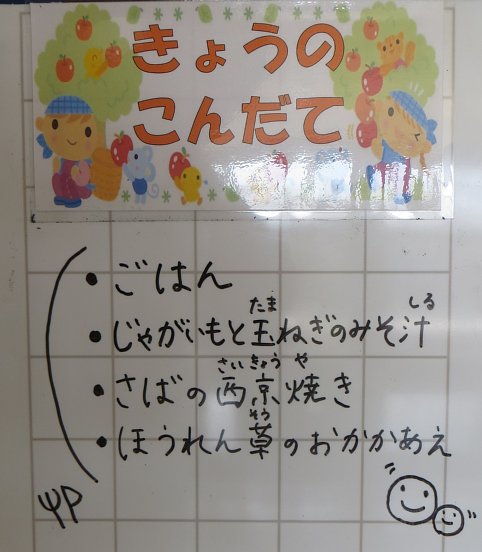 きょうの
こんだて
・ごはん
・じゃがいもと玉ねぎのみそ汁
たま
しる
・さばの西京焼き
さい きょう や
・ほうれん草のおかかあえ
そう